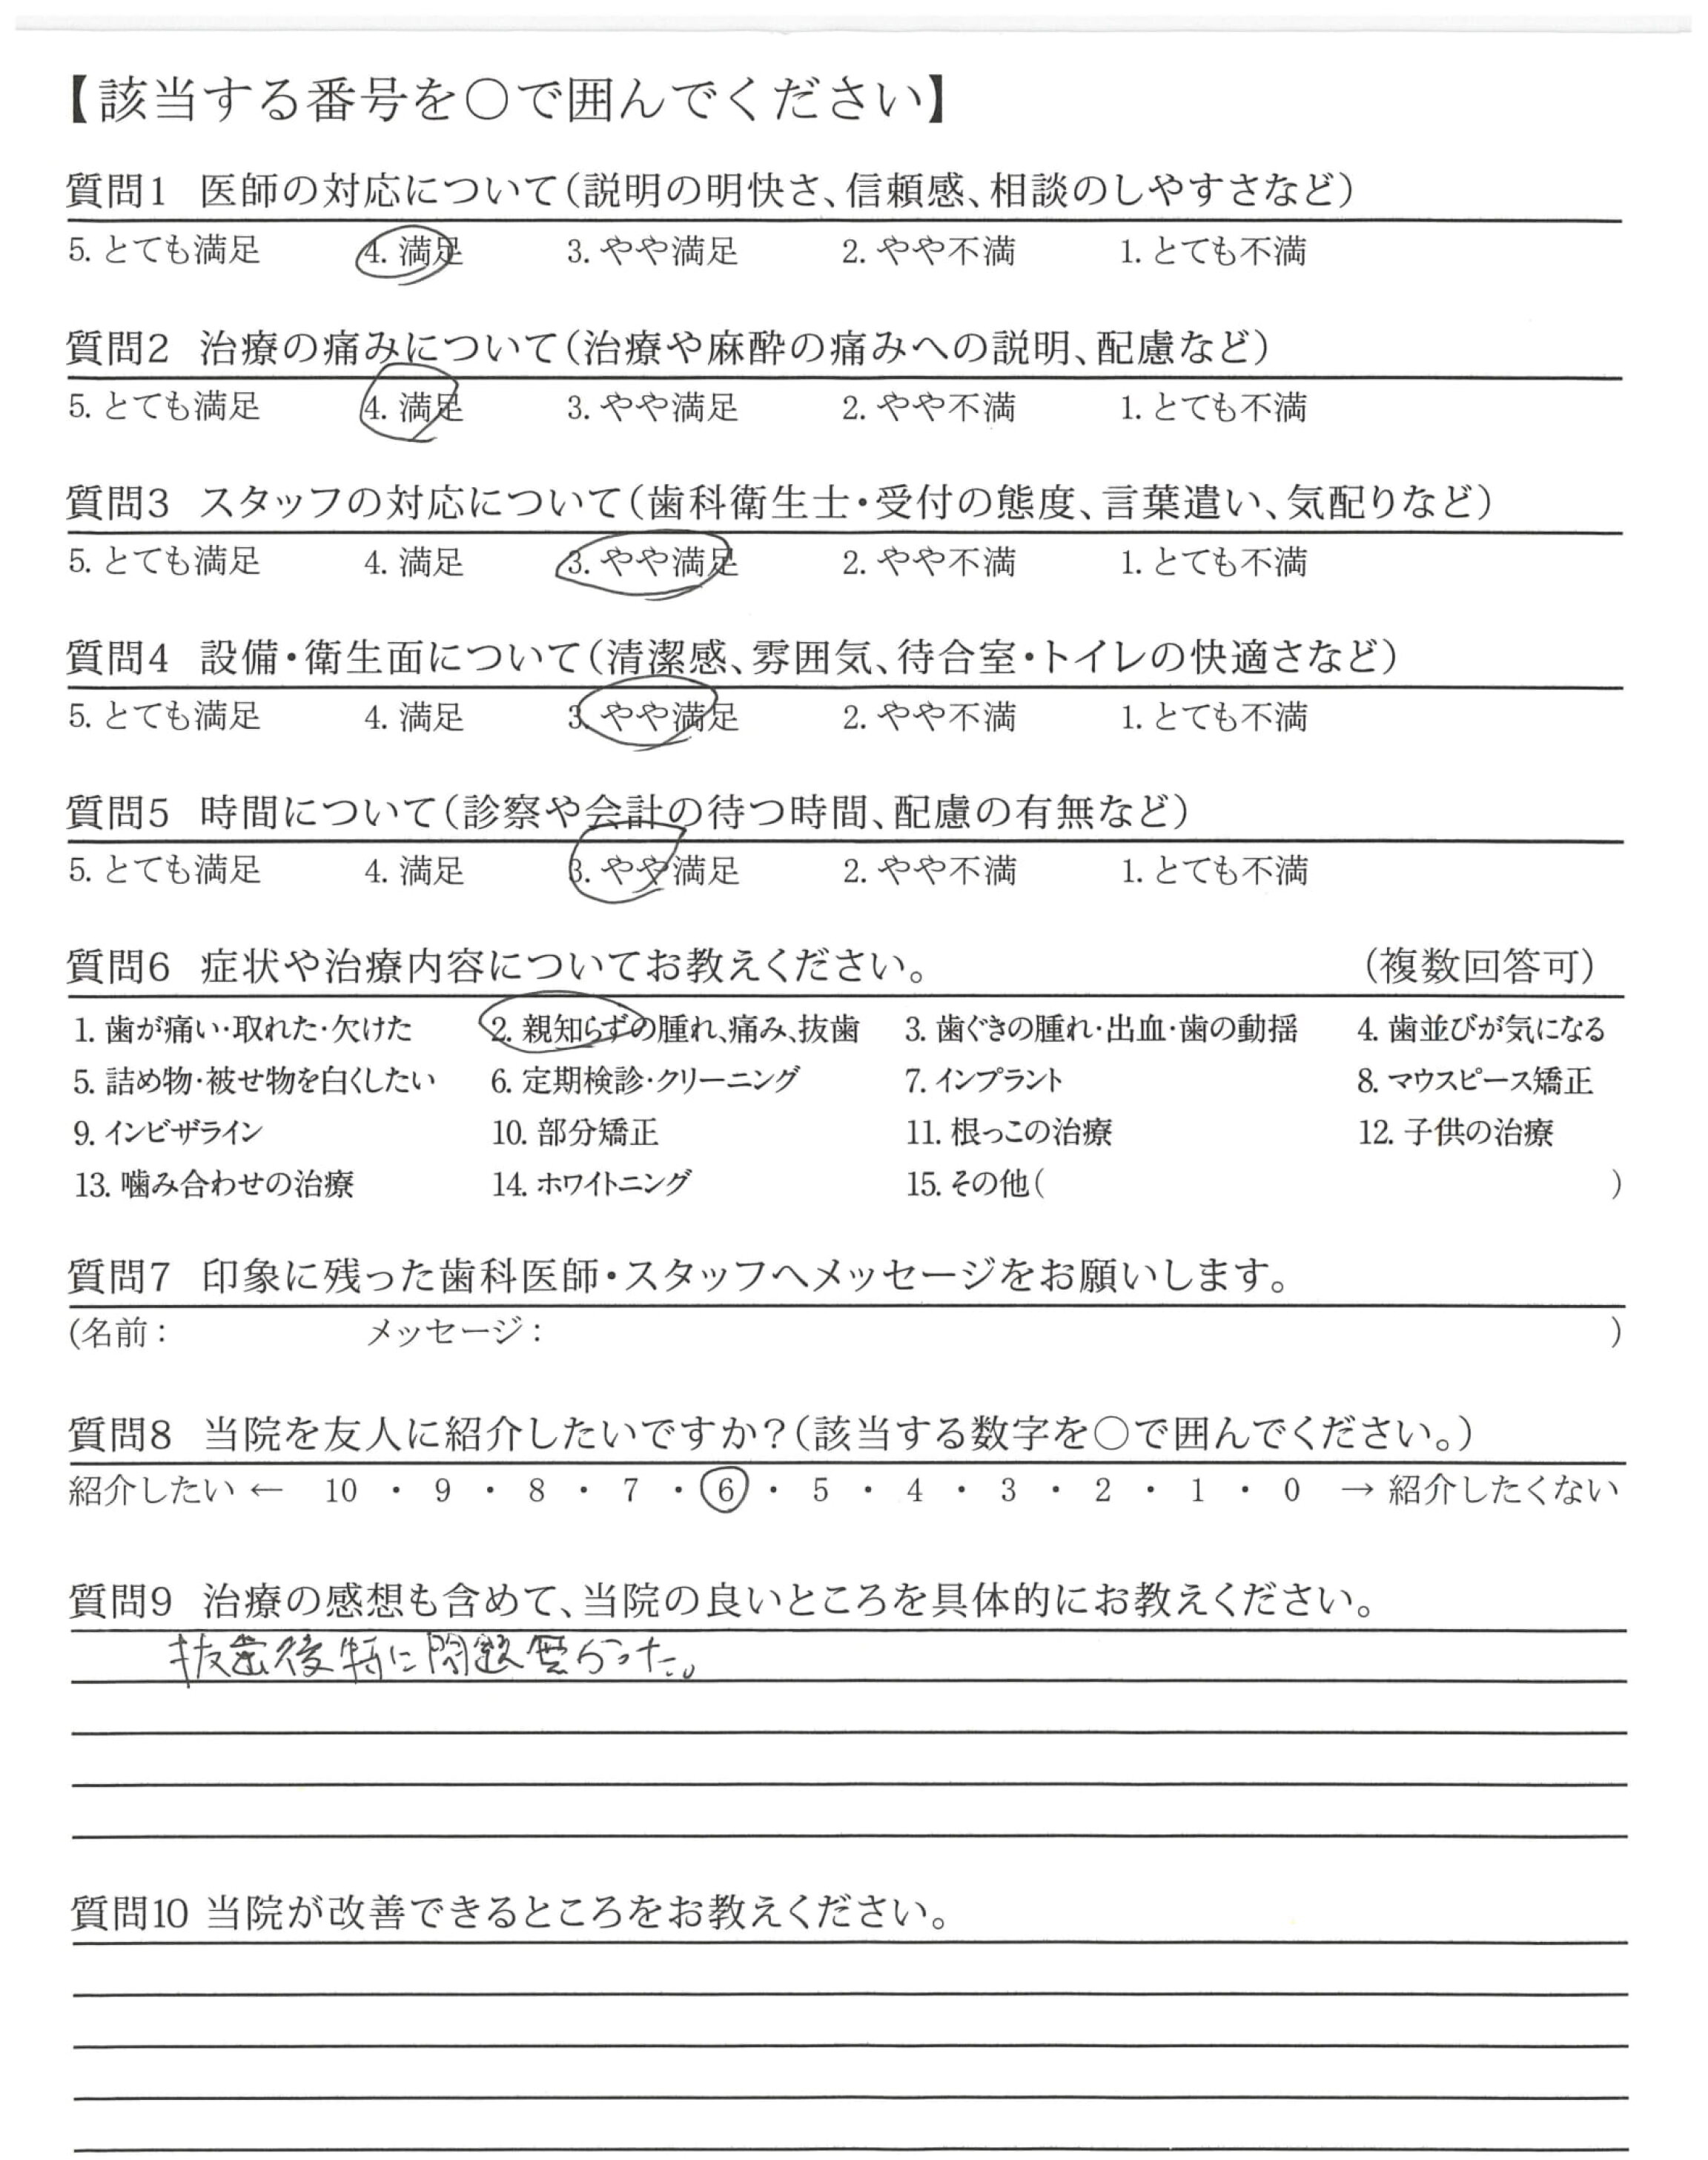 【該当する番号を○で囲んでください】
質問1 医師の対応について(説明の明快さ、信頼感、相談のしやすさなど)
5. とても満足 4. 満足 3. やや満足 2. やや不満 1. とても不満
質問2 治療の痛みについて(治療や麻酔の痛みへの説明、配慮など)
5. とても満足 4. 満足 3. やや満足 2. やや不満 1. とても不満
質問3 スタッフの対応について(歯科衛生士・受付の態度、言葉遣い、気配りなど)
5. とても満足 4. 満足 3. やや満足 2. やや不満 1. とても不満
質問4 設備・衛生面について(清潔感、雰囲気、待合室・トイレの快適さなど)
5. とても満足 4. 満足 3. やや満足 2. やや不満 1. とても不満
質問5 時間について(診察や会計の待つ時間、配慮の有無など)
5. とても満足 4. 満足 3. やや満足 2. やや不満 1. とても不満
質問6 症状や治療内容についてお教えください。 (複数回答可)
1. 歯が痛い・取れた・欠けた 2. 親知らずの腫れ、痛み、抜歯 3. 歯ぐきの腫れ・出血・歯の動揺 4. 歯並びが気になる
5. 詰め物・被せ物を白くしたい 6. 定期検診・クリーニング 7. インプラント 8. マウスピース矯正
9. インビザライン 10. 部分矯正 11. 根っこの治療 12. 子供の治療
13. 噛み合わせの治療 14. ホワイトニング 15. その他( )
質問7 印象に残った歯科医師・スタッフへメッセージをお願いします。
(名前: メッセージ: )
質問8 当院を友人に紹介したいですか?(該当する数字を○で囲んでください。)
紹介したい ← 10 ・ 9 ・ 8 ・ 7 ・ 6 ・ 5 ・ 4 ・ 3 ・ 2 ・ 1 ・ 0 → 紹介したくない
質問9 治療の感想も含めて、当院の良いところを具体的にお教えください。
抜歯後特に問題無かった。
質問10 当院が改善できるところをお教えください。